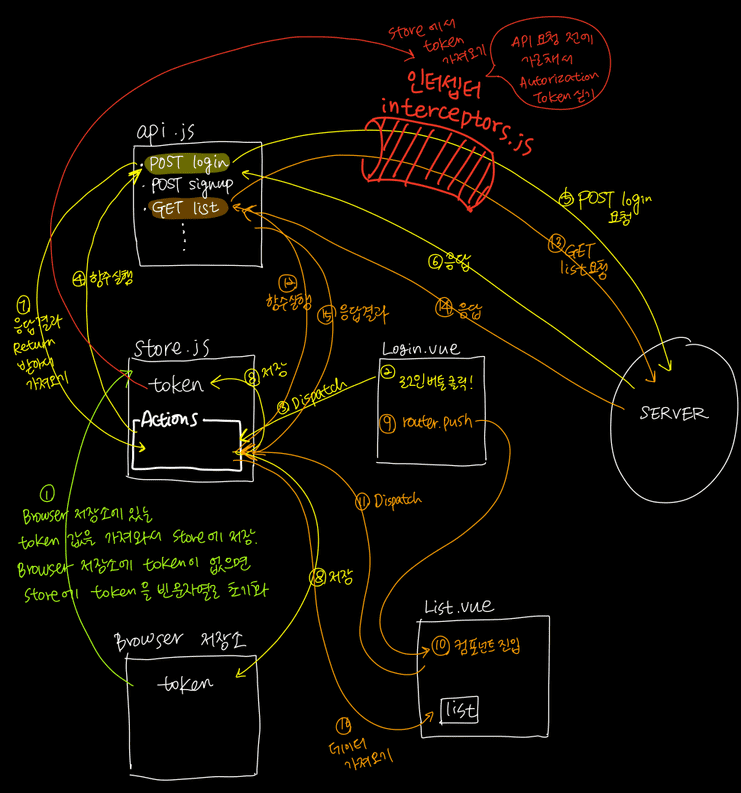 store에서
token
가져오기
API 요청 전에
가로채서
Autorization
Token 싣기
인터셉터
interceptors.js
api.js
· POST login
· POST signup
· GET list
⑤ POST login
요청
⑬ GET
list 요청
⑥ 응답
⑭ 응답
④ 함수실행
⑫
함수실행
⑮ 응답결과
⑦
응답결과
Return
받아서
가져오기
Store.js
token
Actions
⑧ 저장
③ Dispatch
Login.vue
② 로그인버튼클릭!
⑨ router.push
SERVER
①
Browser 저장소에 있는
token 값을 가져와서 store에 저장.
Browser 저장소에 token이 없으면
Store에 token을 빈문자열로 초기화
⑪ Dispatch
⑧ 저장
List.vue
⑩ 컴포넌트 진입
list
Browser 저장소
token
데이터
가져오기